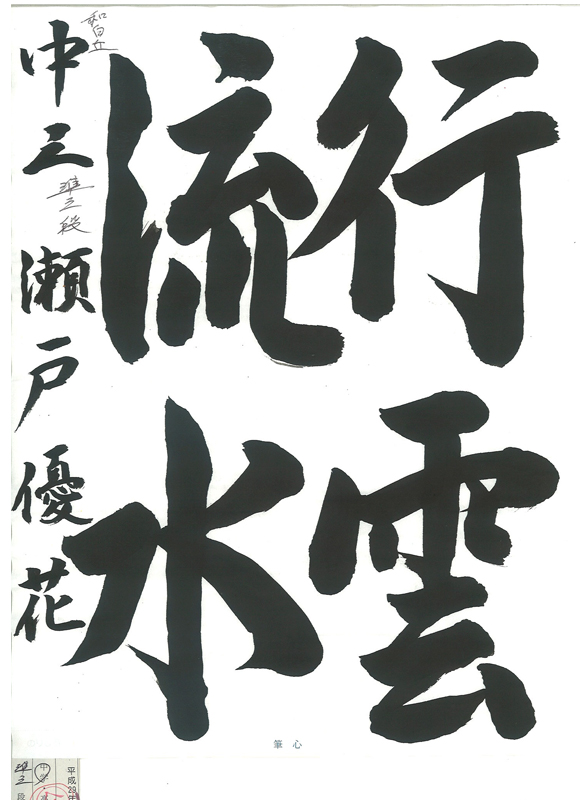 行雲
流水
和白丘
中三 準三段 瀬戸優花
筆心
平成28年
中学
準三段